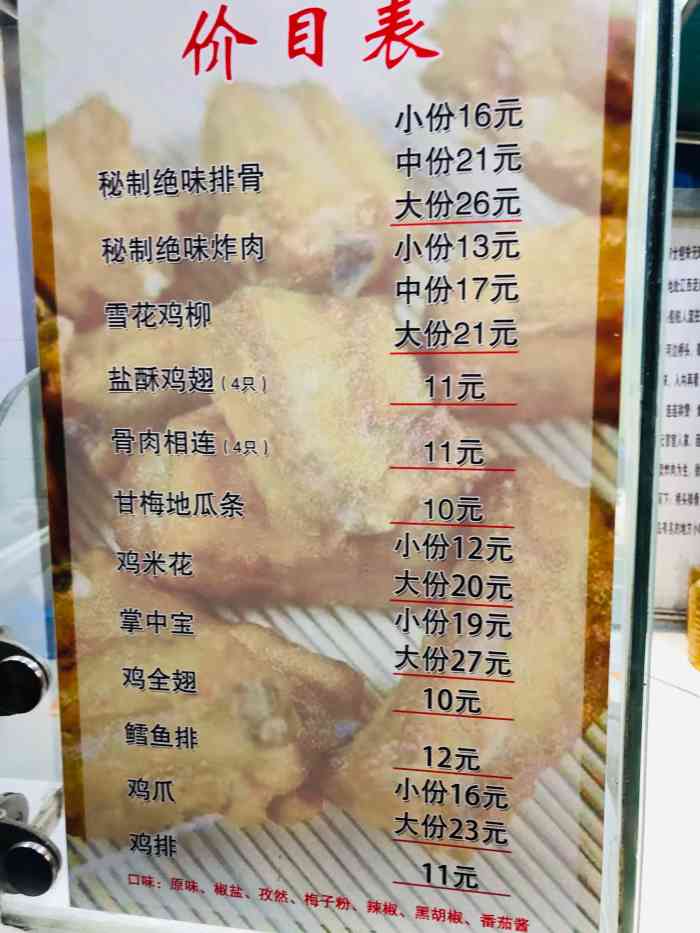 价目表
小份16元
中份21元
秘制绝味排骨
大份26元
秘制绝味炸肉
小份13元
中份17元
雪花鸡柳
大份21元
盐酥鸡翅（4只）
11元
骨肉相连（4只）
11元
甘梅地瓜条
10元
小份12元
鸡米花
大份20元
掌中宝
小份19元
大份27元
鸡全翅
10元
鳕鱼排
12元
鸡爪
小份16元
大份23元
鸡排
11元
口味：原味、椒盐、孜然、梅子粉、辣椒、黑胡椒、番茄酱